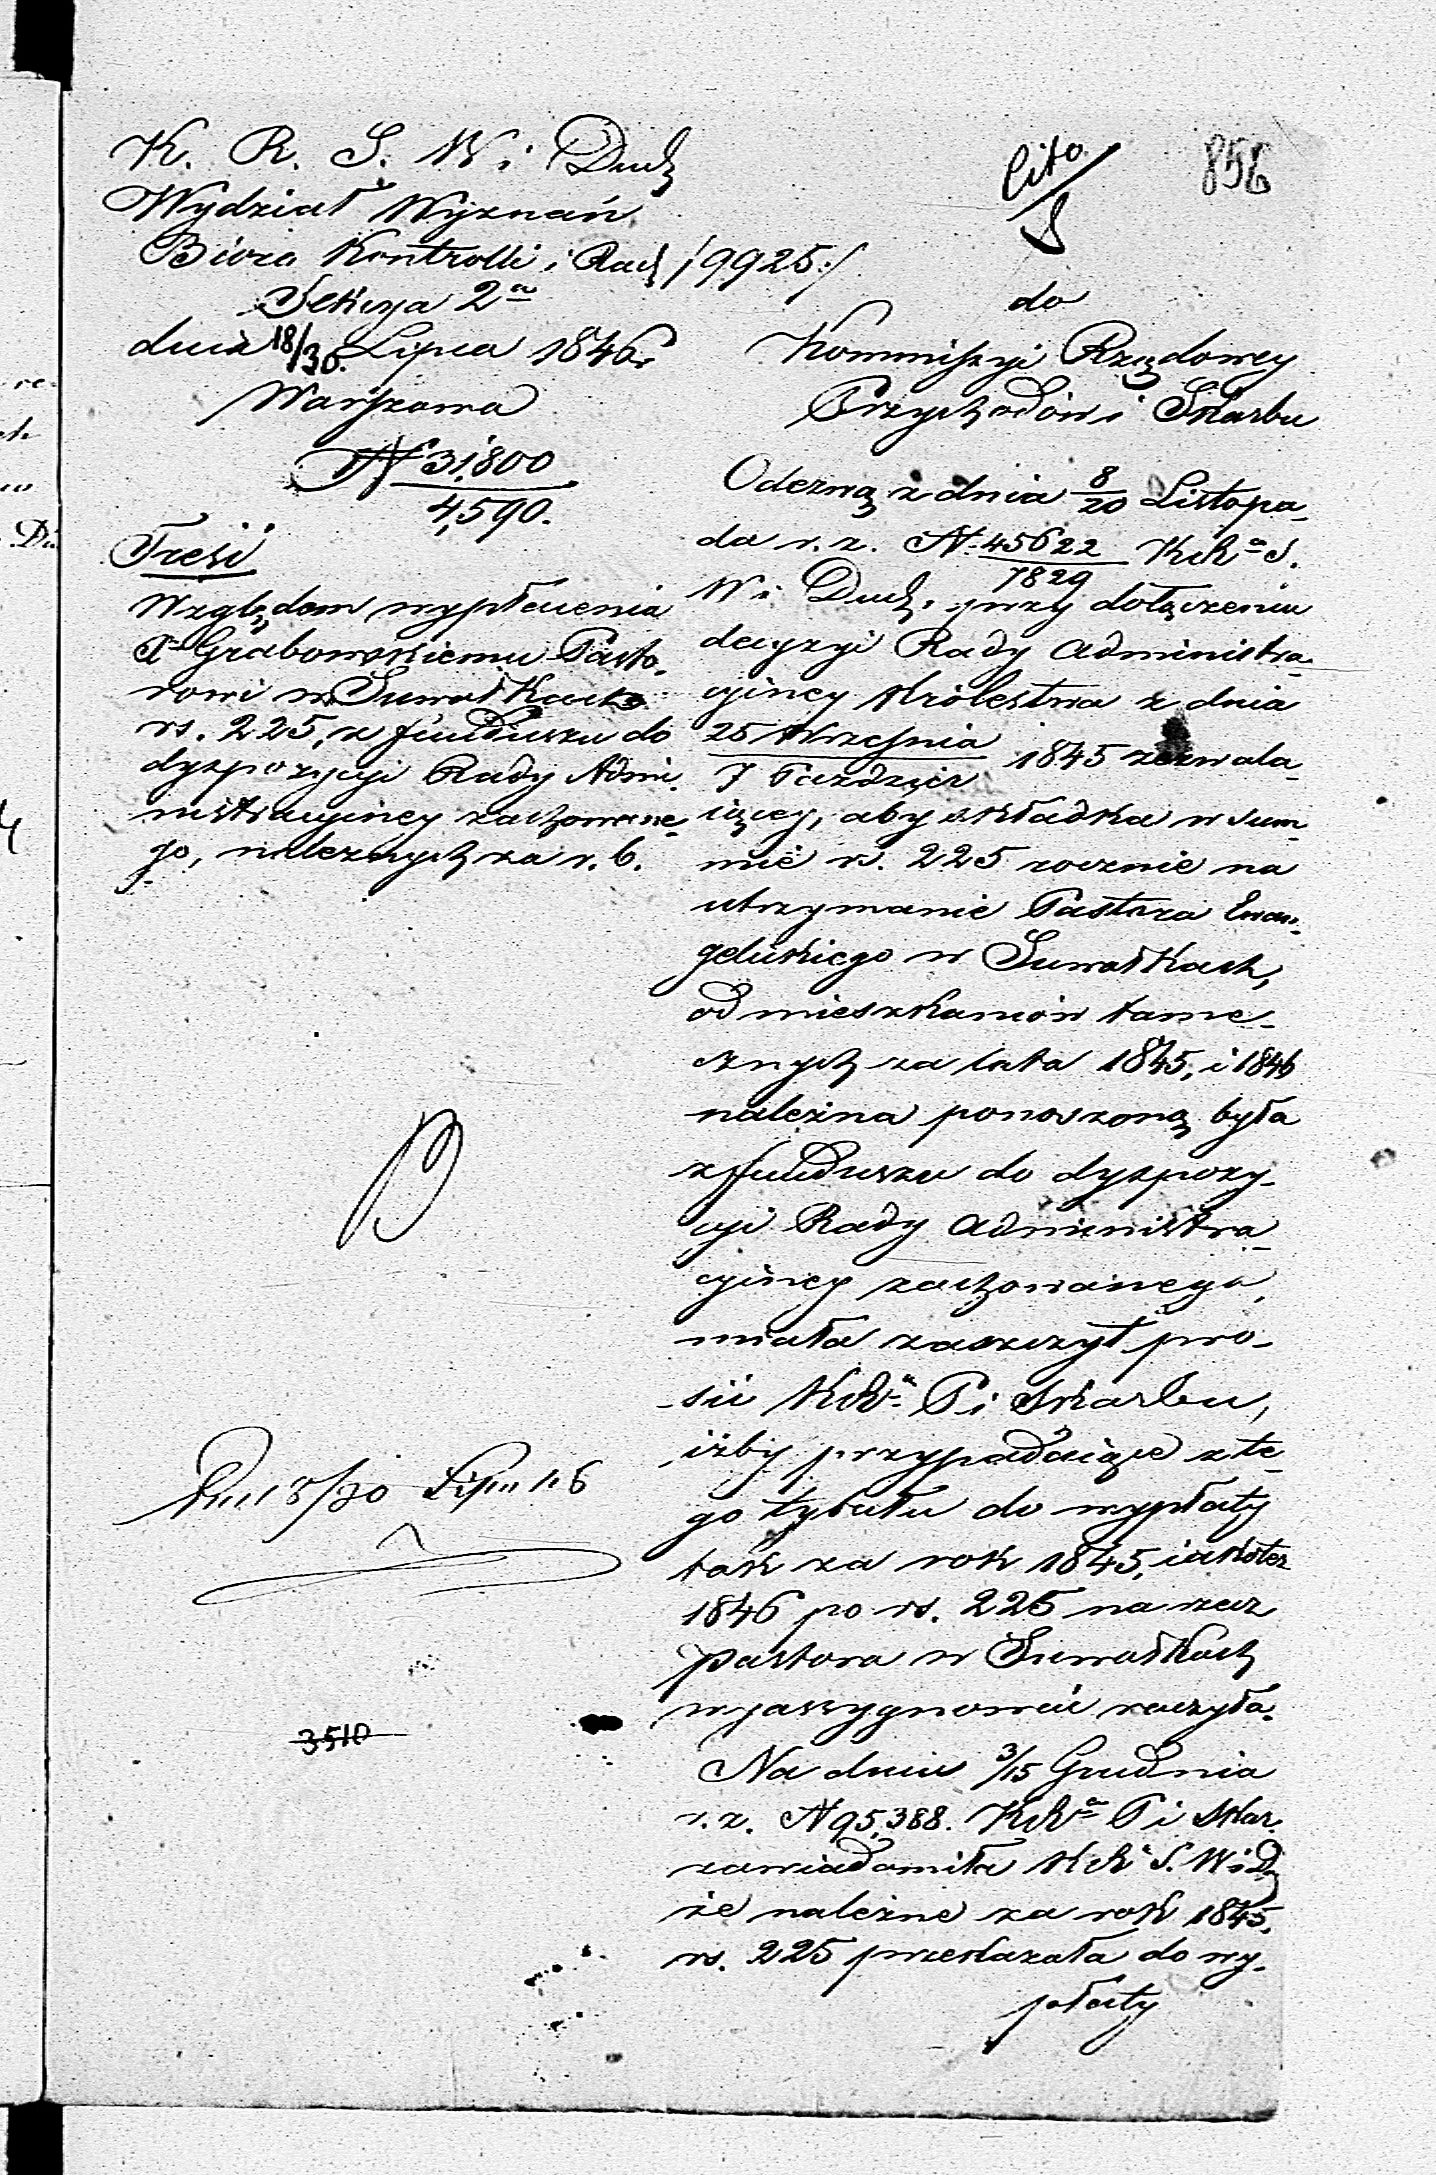 K. R. S. W i Duch
Wydział Wyznań
Biuro Kontrolli i Rach /9925./
Sekcya 2a
dnia 18/30. Lipca 1846 r
Warszawa
N 31,800
4,590.
Treść
Względem wypłacenia
X Grabowskiemu Pasto-
rowi w Suwałkach
rs. 225, z funduszu do
dyspozycyi Rady Admi-
nistracyiney zachowane-
go, należnych za r. b.
Dnia 18/30 Lipca 46
3510
cito
856
do
Kommissyi Rządowey
Przychodów i Skarbu
Odezwą z dnia 8/20 Listopa-
da r. z. N. 45622/7829 KRa S.
W i Duch, przy dołączeniu
decyzyi Rady Administra-
cyiney Królestwa z dnia
25 Września
7 Paździer 1845 zezwala-
iącey, aby składka w sum-
mie rs. 225 rocznie na
utrzymanie Pastora Ewan-
gelickiego w Suwałkach,
od mieszkańców tame-
cznych za lata 1845, i 1846
należna ponoszoną była
z funduszu do dyspozy-
cyi Rady Administra-
cyiney zachowanego,
miała zaszczyt pro-
sić KRa P i Skarbu,
iżby przypadaiące z te-
go tytułu do wypłaty
tak za rok 1845, iakoteż
1846 po rs. 225 na rzecz
Pastora w Suwałkach
wyassygnować raczyła.
Na dniu 3/15 Grudnia
r. z. N 95,388. KRa P i Skar.
zawiadomiła KR S. W i D
że należne za rok 1845,
rs. 225 przekazała do wy-
płaty